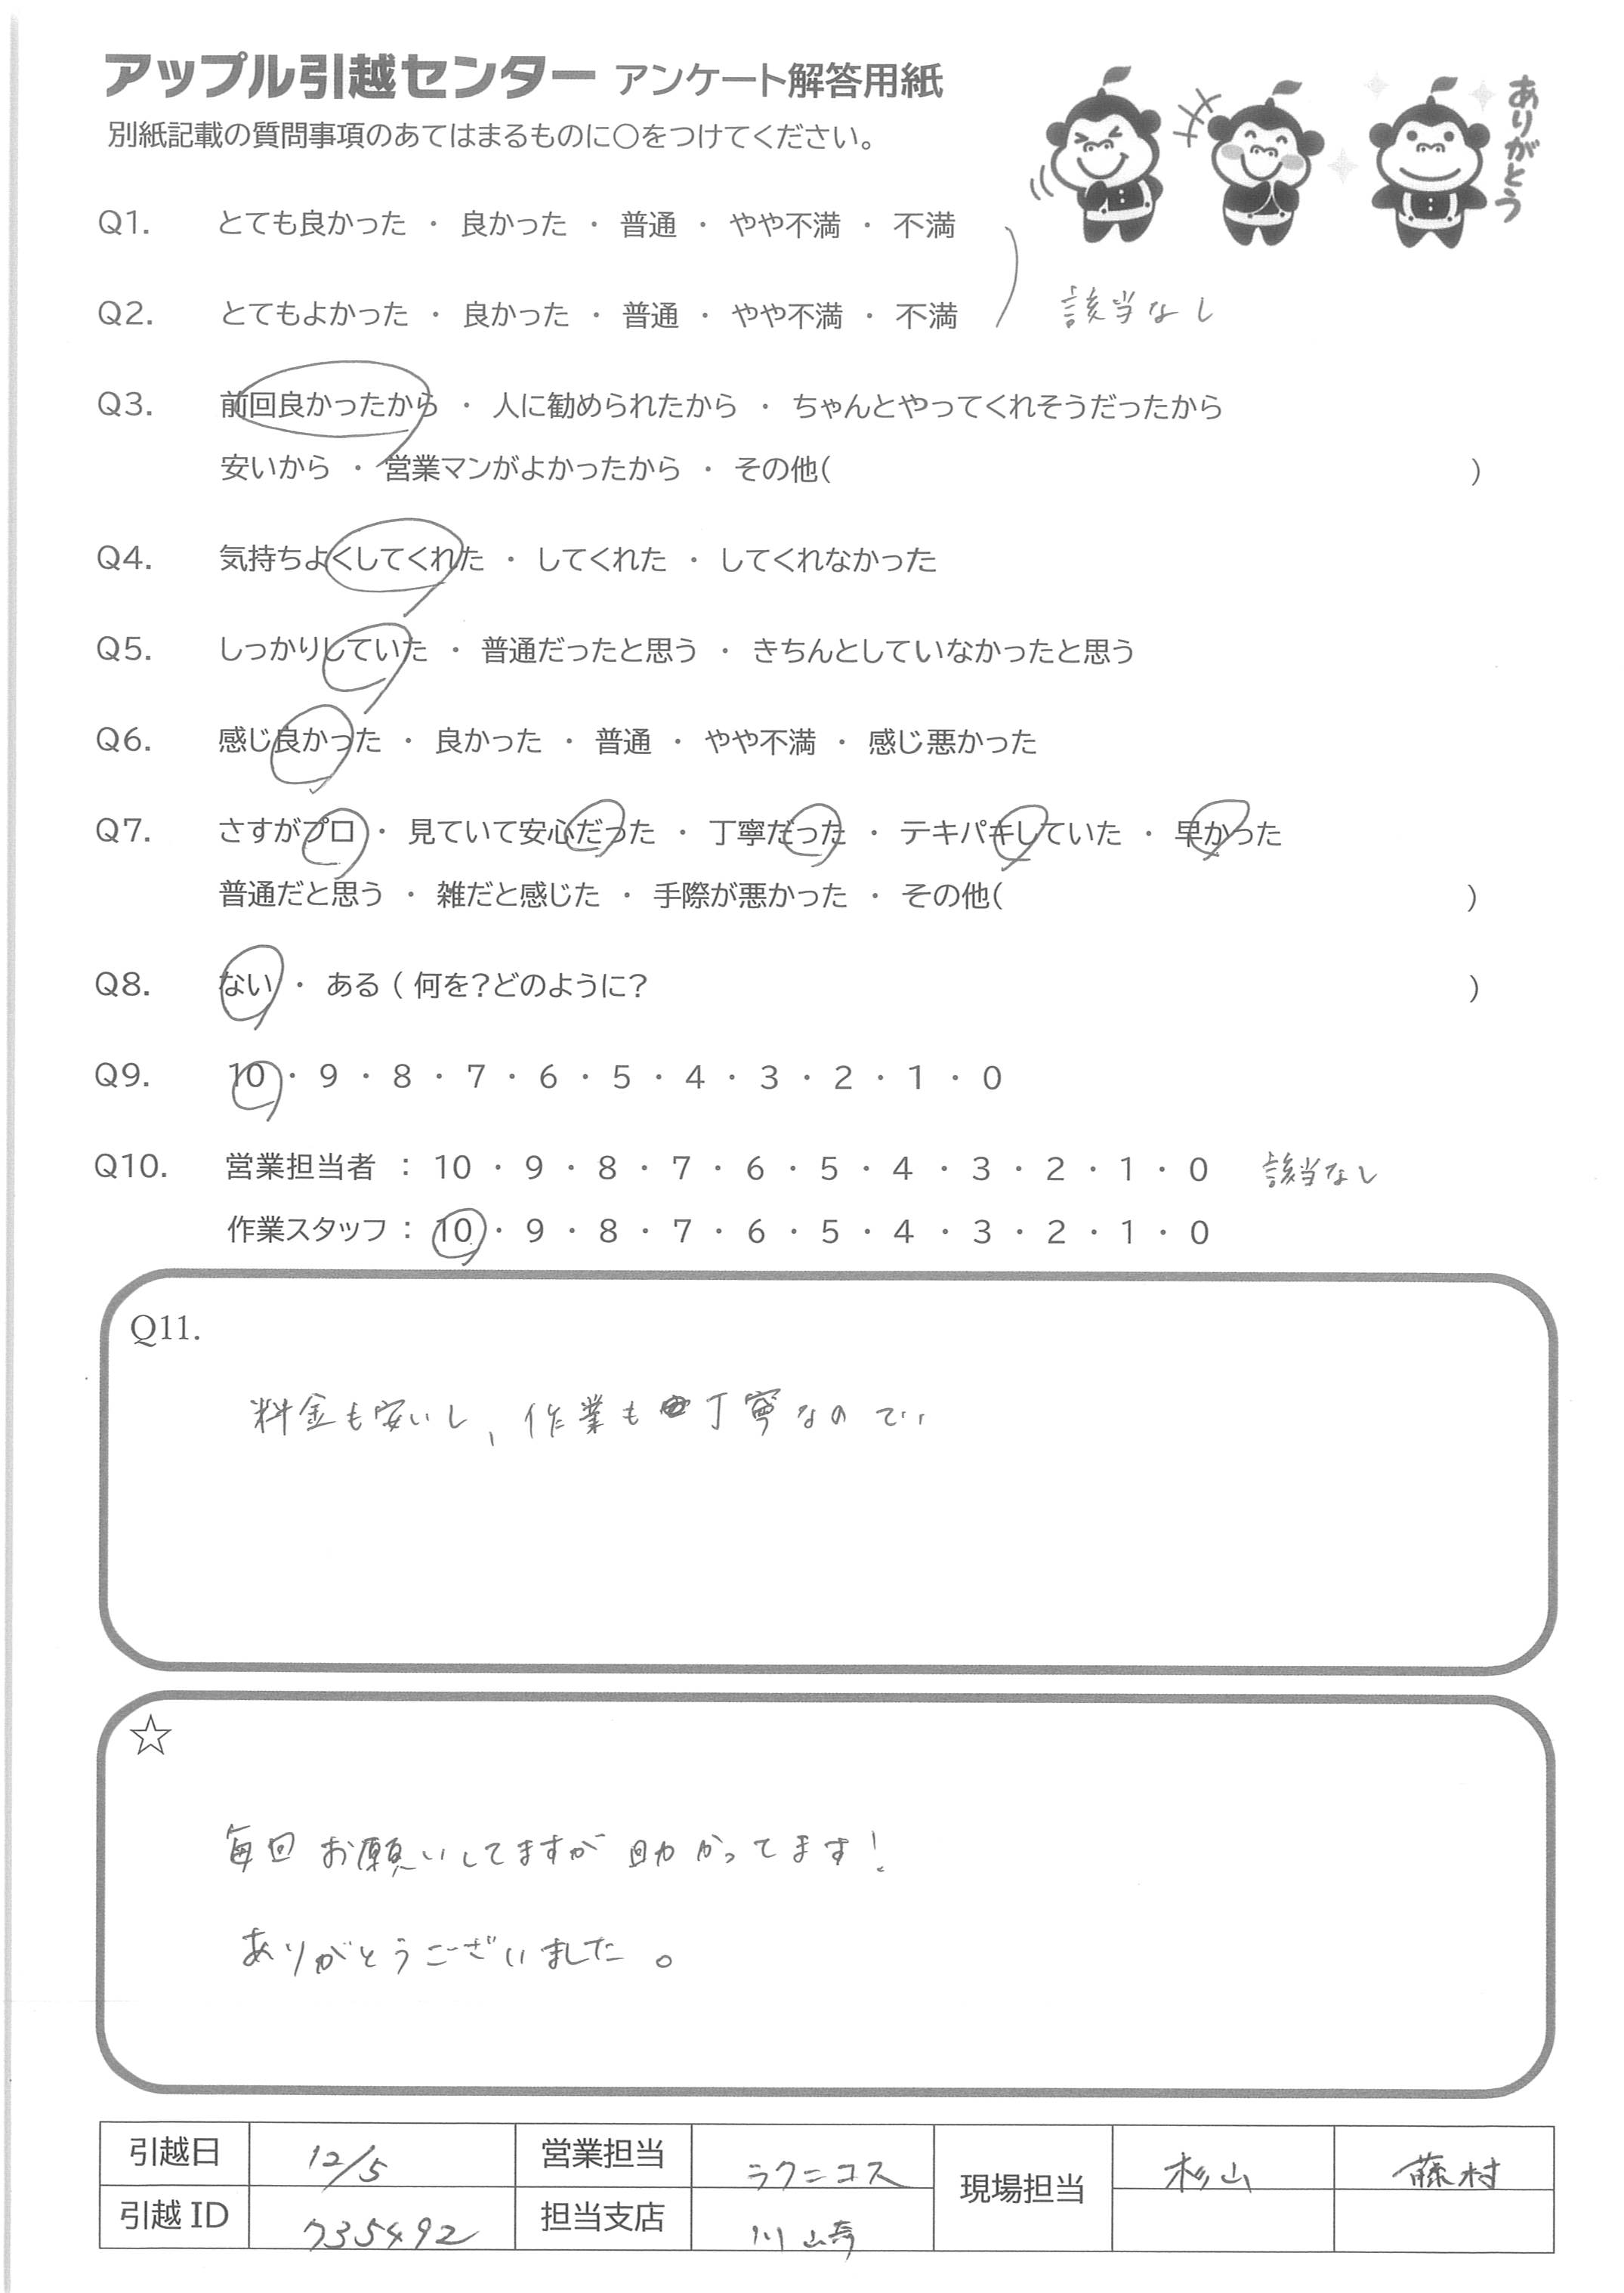 アップル引越センター アンケート解答用紙
ありがとう
別紙記載の質問事項のあてはまるものに〇をつけてください。
Q1. とても良かった ・ 良かった ・ 普通 ・ やや不満 ・ 不満
Q2. とてもよかった ・ 良かった ・ 普通 ・ やや不満 ・ 不満
該当なし
Q3. 前回良かったから ・ 人に勧められたから ・ ちゃんとやってくれそうだったから
安いから ・ 営業マンがよかったから ・ その他( )
Q4. 気持ちよくしてくれた ・ してくれた ・ してくれなかった
Q5. しっかりしていた ・ 普通だったと思う ・ きちんとしていなかったと思う
Q6. 感じ良かった ・ 良かった ・ 普通 ・ やや不満 ・ 感じ悪かった
Q7. さすがプロ ・ 見ていて安心だった ・ 丁寧だった ・ テキパキしていた ・ 早かった
普通だと思う ・ 雑だと感じた ・ 手際が悪かった ・ その他( )
Q8. ない ・ ある ( 何を?どのように? )
Q9. 10 ・ 9 ・ 8 ・ 7 ・ 6 ・ 5 ・ 4 ・ 3 ・ 2 ・ 1 ・ 0
Q10. 営業担当者 : 10 ・ 9 ・ 8 ・ 7 ・ 6 ・ 5 ・ 4 ・ 3 ・ 2 ・ 1 ・ 0 該当なし
作業スタッフ : 10 ・ 9 ・ 8 ・ 7 ・ 6 ・ 5 ・ 4 ・ 3 ・ 2 ・ 1 ・ 0
Q11.
料金も安いし、作業も丁寧なので..
☆
毎回お願いしてますが助かってます!
ありがとうございました。
引越日 12/5 営業担当 ラクニコス 現場担当 杉山 藤村
引越ID 735492 担当支店 川崎